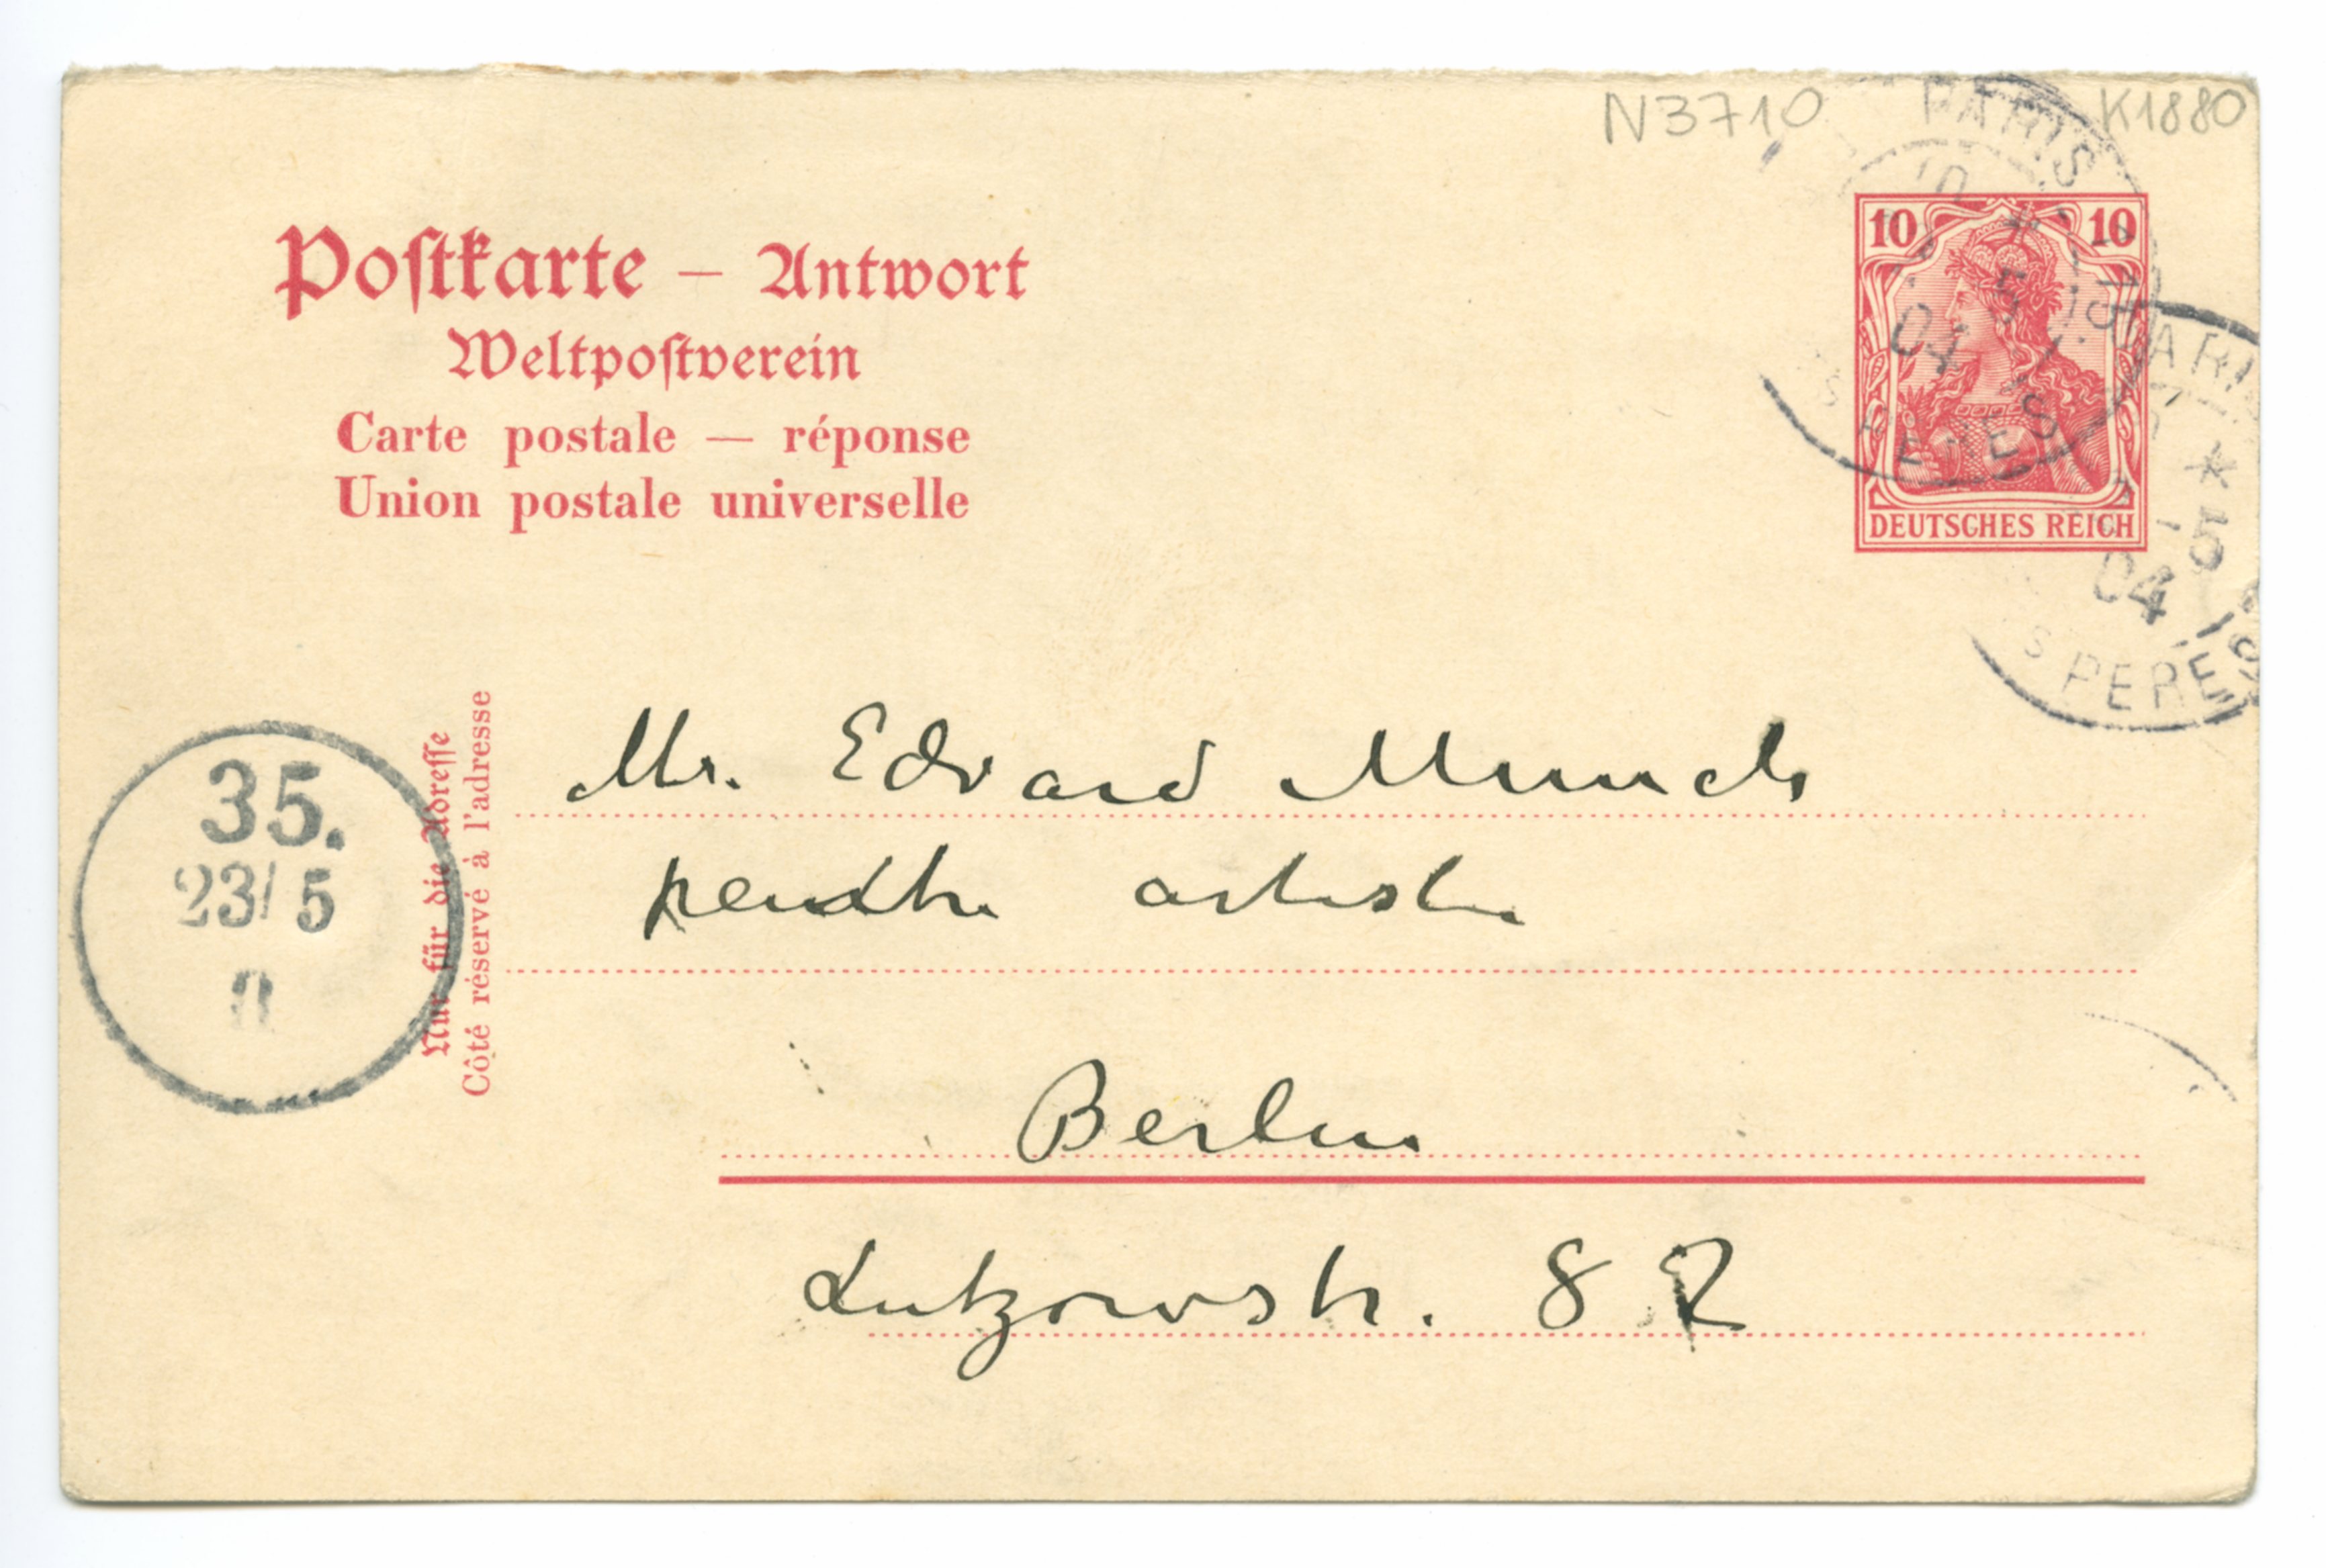 N3710 K1880
Postkarte – Antwort
Weltpostverein
Carte postale — réponse
Union postale universelle
10 10
DEUTSCHES REICH
PARIS
5
04
S PERES
PARIS
*
5
04
S PERES
35.
23/5
Nur für die Adresse
Côté réservé à l'adresse
Mr. Edvard Munch
peintre artiste
Berlin
Lutzowstr. 82